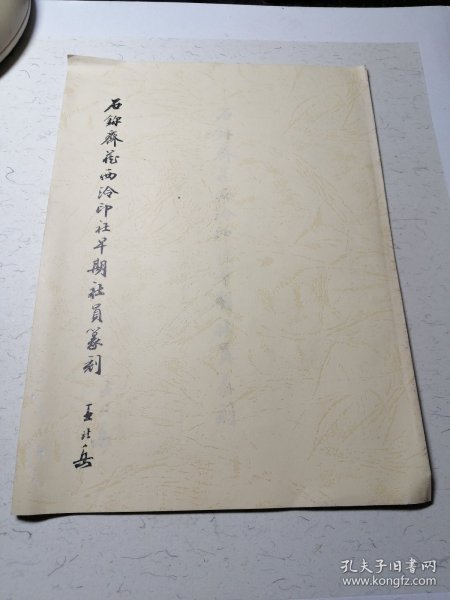 石鉨齋藏西泠印社早期社員篆刻
王北岳
孔夫子旧书网
www.kongfz.com